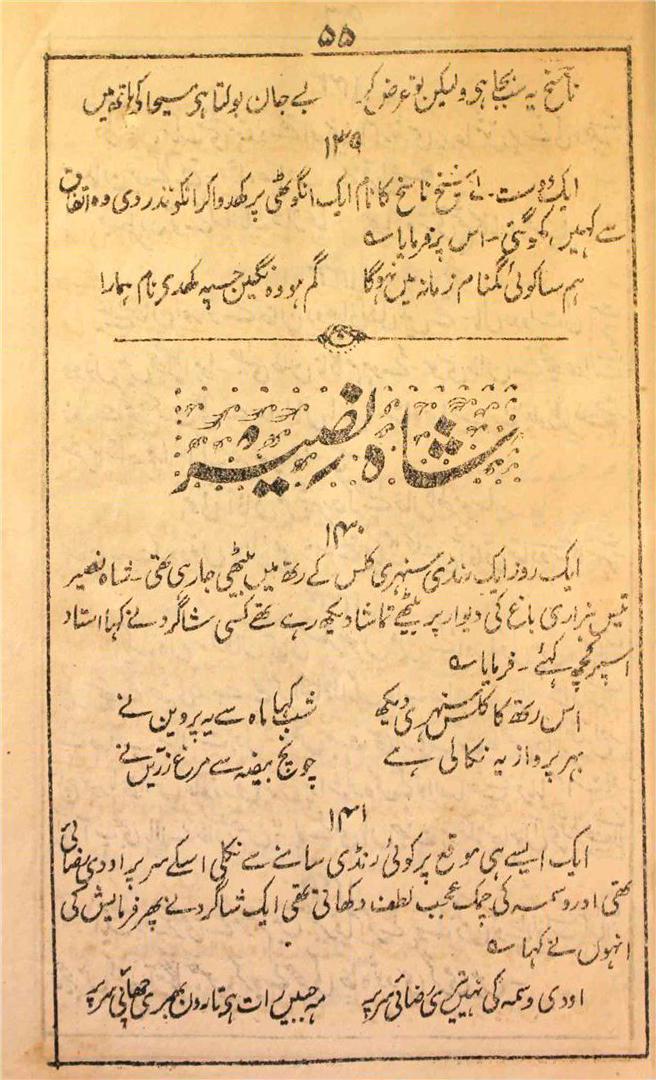 ۵۵
ناسخ یہ سب بجا ہی ولیکن تو عرض کر بے جان بولتا ہی مسیحا کی ہاتھ میں
۱۳۹
ایک دوست نے شیخ ناسخ کا نام ایک انگوٹھی پر کھدوا کر انکو نذر دی وہ اتفاق
سے کہیں کھو گئی - اس پر فرمایا ؎
ہم سا کوئی گمنام زمانہ میں نہوگا گم ہو وہ نگین جسپہ کھدی نام ہمارا
شاہ نصیر
۱۴۰
ایک روز ایک رنڈی سنہری کلس کے رتھ میں بیٹھی جا رہی تھی - شاہ نصیر
تیس ہزاری باغ کی دیوار پر بیٹھے تماشا دیکھ رہے تھے کسی شاگرد نے کہا استاد
اسپر کچھ کہئے - فرمایا ؎
اس رتھ کا کلس سنہری دیکھ شب کہا ماہ سے یہ پروین نے
بہر پرواز یہ نکالی ہے چونچ بیضہ سے مرغ زرّیں نے
۱۴۱
ایک ایسے ہی موقع پر کوئی رنڈی سامنے سے نکلی اسکے سر پر اودی رضائی
تھی اور وسمہ کی چمک عجب لطف دکھاتی تھی ایک شاگرد نے پھر فرمایش کی
انہوں نے کہا ؎
اودی وسمہ کی نہیں تیری رضائی سر پر مہ جبیں رات ہی تارون بھری چھائی سر پر